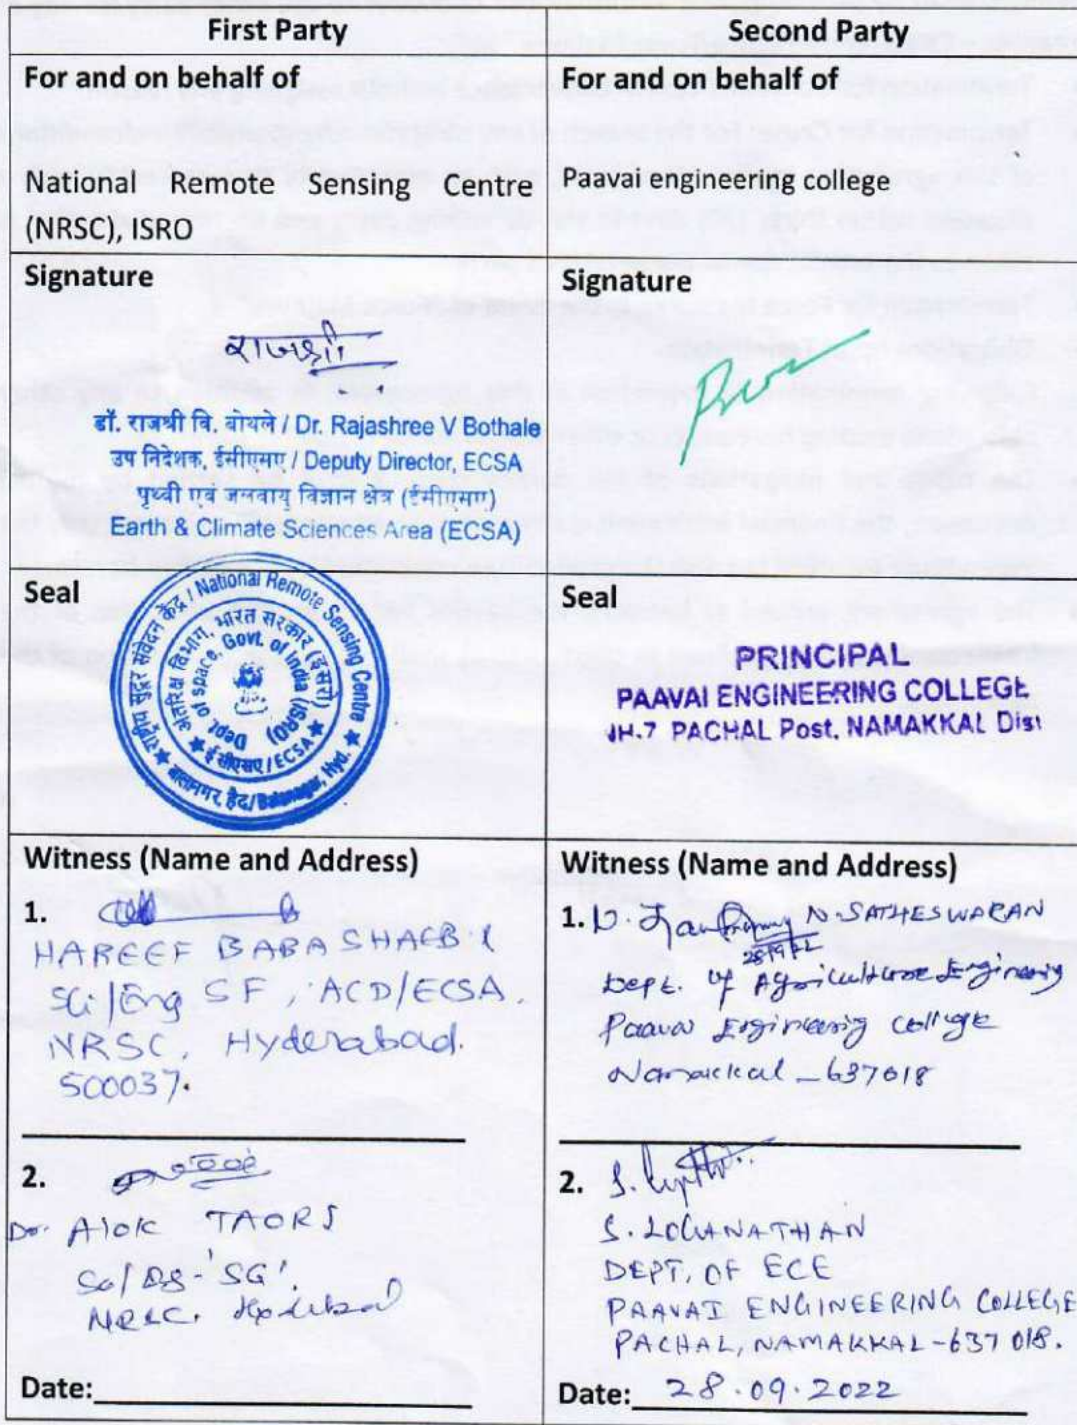 First Party
Second Party
For and on behalf of
For and on behalf of
National Remote Sensing Centre
(NRSC), ISRO
Paavai engineering college
Signature
राजश्री
डॉ. राजश्री वि. बोथले / Dr. Rajashree V Bothale
उप निदेशक, ईसीएसए / Deputy Director, ECSA
पृथ्वी एवं जलवायु विज्ञान क्षेत्र (ईसीएसए)
Earth & Climate Sciences Area (ECSA)
Signature
Seal
राष्ट्रीय सुदूर संवेदन केंद्र / National Remote Sensing Centre
अंतरिक्ष विभाग, भारत सरकार (इसरो)
Dept. of space, Govt. of India (ISRO)
ईसीएसए / ECSA
बालानगर, हैद/Balanagar, Hyd.
Seal
PRINCIPAL
PAAVAI ENGINEERING COLLEGE
NH-7 PACHAL Post, NAMAKKAL Dist
Witness (Name and Address)
1.
HAREEF BABA SHAEB K
Sci/Eng SF, ACD/ECSA,
NRSC, Hyderabad.
500037.
2.
Dr. Alok TAORI
'SG'.
Date:
Witness (Name and Address)
1. N. SATHESWARAN
Dept. of Agriculture Engineering
Paavai Engineering College
Namakkal - 637018
2.
S. LOGANATHAN
DEPT. OF ECE
PAAVAI ENGINEERING COLLEGE
PACHAL, NAMAKKAL-637 018.
Date: 28.09.2022